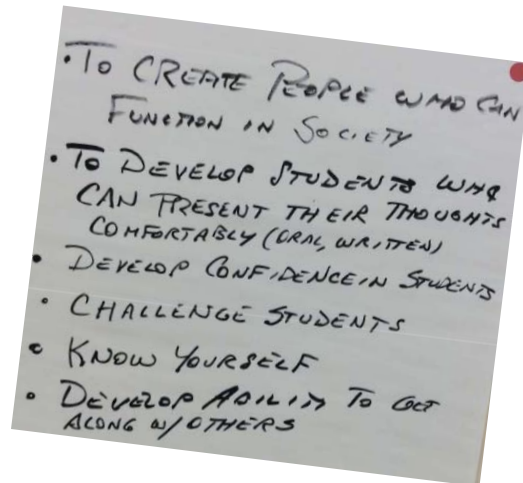 • To CREATE PEOPLE WHO CAN
FUNCTION IN SOCIETY
• To DEVELOP STUDENTS WHO
CAN PRESENT THEIR THOUGHTS
COMFORTABLY (ORAL, WRITTEN)
• DEVELOP CONFIDENCE IN STUDENTS
• CHALLENGE STUDENTS
• KNOW YOURSELF
• DEVELOP ABILITY To GET
ALONG W/ OTHERS